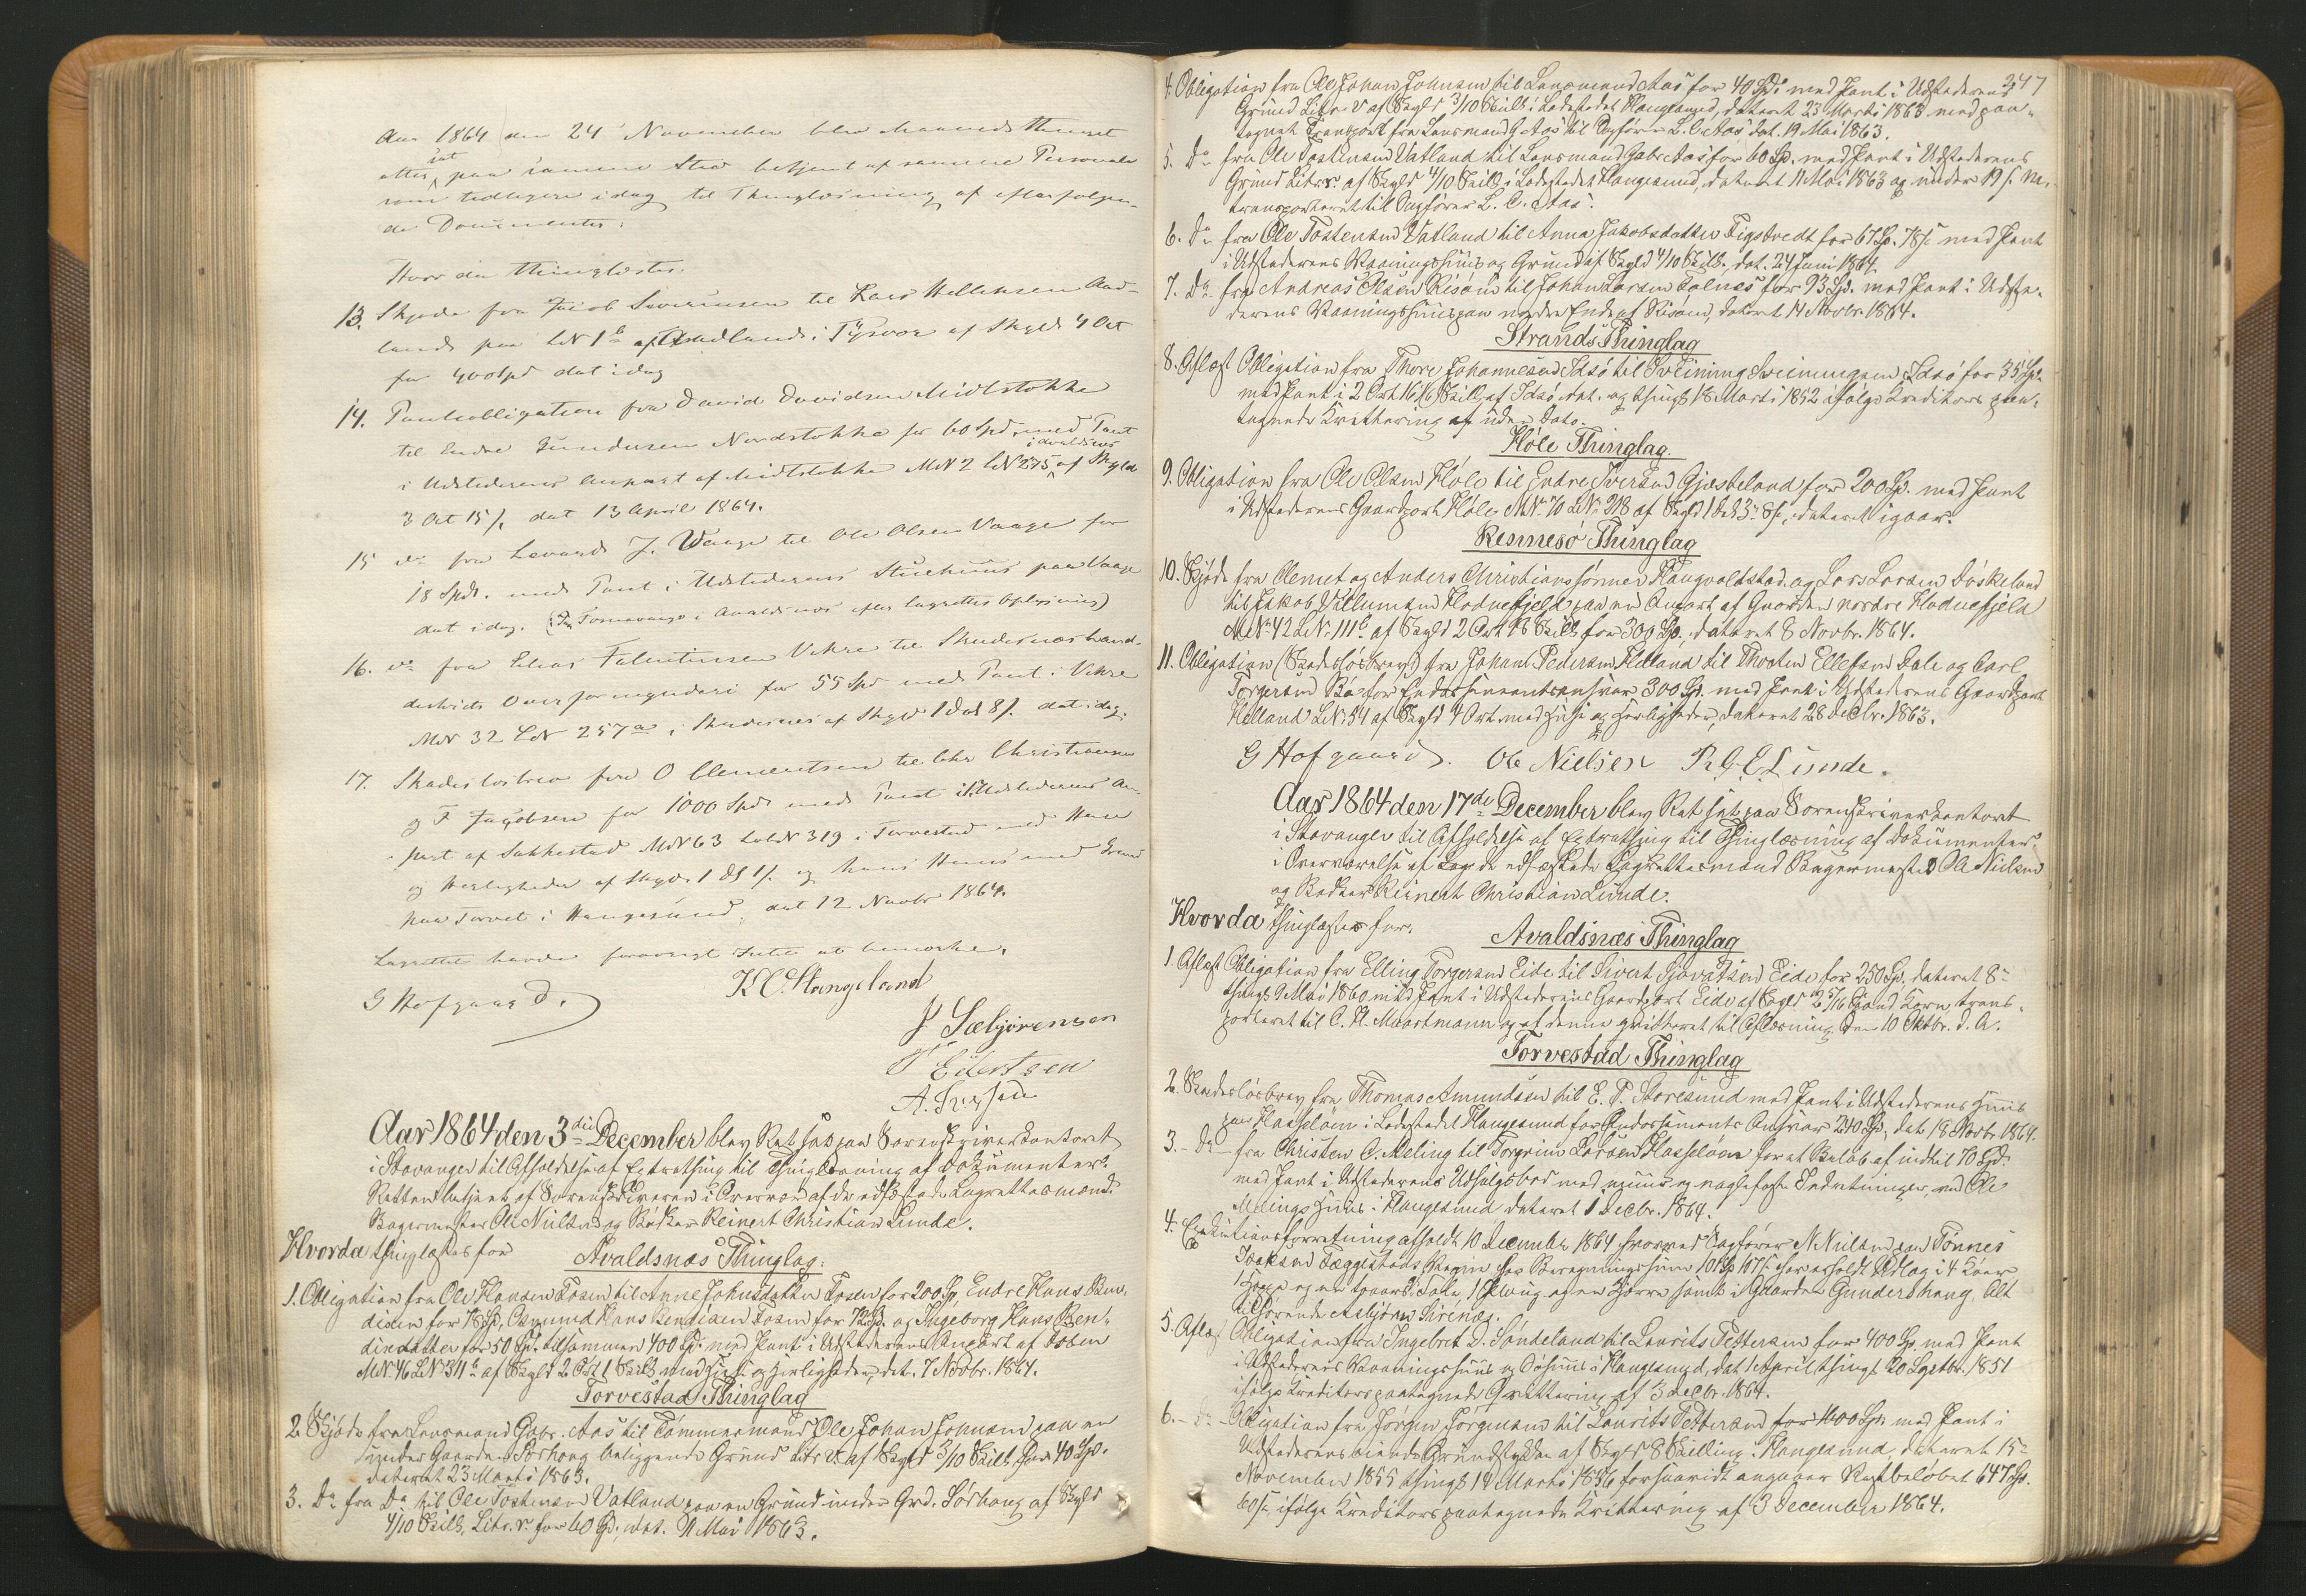 Aar 1864 den 24 November blev Maanedsthinget
atter sat paa samme Sted betjent af samme Personale
som tidligere idag til Thinglæsning af efterfølgen-
de Documenter:
Hvor da thinglæstes:
13. Skjøde fra Jacob Severinsen til Lars Helliksen Aad-
land paa LN 1 b af Aadland i Tysvær af Skyld 4 Ort
for 400 Spd dat idag
14. Pantobligation fra David Davidsen Midtstokke
til Endre Gundersen Nordstokke for 60 Spd. med Pant
i Udstederens Anpart af Midtstokke MN 7 LN 275 i Avaldsnes af Skyld
3 Ort 15 ß, dat 13 April 1864.
15 do fra Levard J. Waage til Ole Olsen Vaage for
18 Spd. med Pant i Udstederens Stuehuus paa Vaage
dat idag. (I Avaldsnes efter Lagrettes Oplysning)
16. do fra Elias Falentinsen Vikre til Skudenæs Land-
districts Overformynderi for 55 Spd med Pant i Vikre
MN 32 LN 257 a, i Skudesnes af Skyld 1 Dlr 8 ß. dat idag.
17. Skadesløsbrev fra O Clementsen til Chr Christiansen
og F Jacobsen for 1000 Spd med Pant i Udstederens An-
part af Sakkestad MN 63 LøbN 319 i Torvestad med Huse
og Herligheder af Skyld 1 D 1 ß og hans Huus med Grund
paa Torvet i Haugesund, dat 12 Novbr 1864.
Lagrettet havde forøvrigt Intet at bemærke.
G Hofgaard. K C. Stangeland
J Sæbjørensen
Eilertsen
A. Iversen
Aar 1864 den 3die December blev Ret sat paa Sorenskriverkontoret
i Stavanger til Afholdelse af Extrathing til Thinglæsning af Dokumenter.
Retten betjent af Sorenskriveren i Overvær af de edfæstede Lagrettesmænd:
Bagermester Ole Nielsen og Bødker Reinert Christian Lunde.
Hvorda thinglæstes for
Avaldsnæs Thinglag:
1. Obligation fra Ole Hansen Fosen til Anne Johnsdatter Fosen for 200 Sp, Endre Hans Ben-
dixen for 78 Sp, Osmund Hans Bendixen Fosen for 72 Sp. og Ingeborg Hans Ben-
dixdatter for 50 Sp. tilsammen 400 Sp. med Pant i Udstederens Anpart af Fosen
MN. 46 LN. 311 b af Skyld 2 Ort 1 Skill. med Huse og Herligheder, dat. 7 Novbr. 1864.
Torvestad Thinglag
2 Skjøde fra Lensmand Gabr. Aas til Tømmermand Ole Johan Johnsen paa en
under Gaarden Sørhaug beliggende Grund Litr. v. af Skyld 3/10 Skill. for 40 Sp.
dateret 23 Marts 1863.
3. Do fra Do til Ole Tostensen Vatland paa en Grund under Grd. Sørhaug af Skyld
4/10 Skill. Litr. r. for 60 Sp. dat. 11 Mai 1863.
247
4. Obligation fra Ole Johan Johnsen til Lensmand Aas for 40 Spd med Pant i Udstederens
Grund Litr. v af Skyld 3/10 Skill. i Ladestedet Haugesund, dateret 23 Marts 1863 med paa-
tegnet Transport fra Lensmand G Aas til Sagfører L. C. Aas dat. 19 Mai 1863.
5. Do fra Ole Tostensen Vatland til Lensmand Gabr. Aas for 60 Sp. med Pant i Udstederens
Grund Litr. r. af Skyld 4/10 Skill. i Ladestedet Haugesund, dateret 11 Mai 1863 og under 19 s. M.
transporteret til Sagfører L. C. Aas.
6. Do fra Ole Tostensen Vatland til Anna Jakobsdatter Tigstvedt for 67 Sp. 78 ß med Pant
i Udstederens Vaaningshuus og Grund af Skyld 4/10 Skill. dat. 24 Juni 1864.
7. Do fra Andreas Olsen Risøen til Johan Larsen Tolnes for 93 Sp. med Pant i Udste-
derens Vaaningshuus paa nordre Ende af Risøen, dateret 14 Novbr. 1864.
Strands Thinglag
8. Aflæst Obligation fra Thore Johannesen Idsø til Sveinung Sveinungsen Idsø for 35 Sp.
med Pant i 2 Ort 16 Skill. af Idsø dat. og thingl. 18 Marts 1852 ifølge Kreditors paa-
tegnede Kvittering af uden Dato.
Høle Thinglag.
9. Obligation fra Ole Olsen Høle til Endre Iversen Gjesteland for 200 Sp. med Pant
i Udstederens Gaardpart Høle MN. 70 LN. 218 af Skyld 1 Dlr. 3 8 ß, dateret igaar.
Rennesø Thinglag
10. Skjøde fra Clemet og Anders Christianssønner Haugvaldstad og Lars Larsen Døskeland
til Jakob Villumsen Hodnefjeld paa en Anpart af Gaarden nordre Hodnefjeld
MN. 42 LN. 111 b af Skyld 2 Ort 18 Skill. for 300 Sp. dateret 8 Novbr. 1864.
11. Obligation (Skadesløsbrev) fra Johans Pedersen Helland til Thorsten Ellefsen Dale og Carl
Torgersen Bø for Endossementsansvar 300 Sp. med Pant i Udstederens Gaardpart
Helland LN. 54 af Skyld 4 Ort med Huse og Herligheder, dateret 28 Decbr. 1863.
G Hofgaard. Ole Nielsen R. C. Lunde.
Aar 1864 den 17de December blev Ret sat paa Sorenskriverkontoret
i Stavanger til Afholdelse af Extrathing til Thinglæsning af Dokumenter
i Overværelse af de edfæstede Lagrettesmænd Bagermester Ole Nielsen
og Bødker Reinert Christian Lunde.
Hvorda thinglæstes for:
Avaldsnæs Thinglag
1. Aflæst Obligation fra Elling Torgersen Eide til Sivert Sjovatsen Eide for 250 Sp. dateret 8de
thingl. 9 Mai 1860 med Pant i Udstederens Gaardpart Eide af Skyld 2 5/16 Spand Korn, trans-
porteret til C. H. Maartmann og af denne qvitteret til Aflæsning den 10 Oktbr. d. A.
Torvestad Thinglag
2. Skadesløsbrev fra Thomas Amundsen til E. P. Storesund med Pant i Udstederens Huus
paa Hasseløen i Ladestedet Haugesund for Endossements Ansvar 240 Sp, dat. 18 Novbr 1864.
3. Do fra Christen C. Meling til Torgrim Larsen Hasseløen for et Beløb af indtil 70 Sp.
med Pant i Udstederens Udsalgsbod med muur og naglefaste Indretninger, ved Ole
Melings Huus i Haugesund dateret 1 Decbr. 1864.
4. Exekutionsforretning afholdt 10 December 1864 hvorved Sagfører N Nielsen paa Tønnes
Isaksen Fæggestads Vegne for Beregningssum 101 Sp 107 ß har erholdt Udlæg i 4 Køer
1 Hoppe og en Føll, 1 Plaug og en Harv samt i Gaarden Gundershaug, Alt
tilhørende Asbjørn Sørensen.
5. Aflæst Obligation fra Ingebret D. Søndeland til Laurits Pettersen for 400 Sp. med Pant
i Udstederens Vaaningshuus og Søhuus i Haugesund, dat 1 April thingl. 20 Septbr. 1851
ifølge Kreditors paategnede Qvittering af 3 Decbr. 1864.
6. Do Obligation fra Jørgen Jørgensen til Laurits Pettersen for 1600 Sp. med Pant i
Udstederens eiende Grundstykke af Skyld 8 Skilling i Haugesund, dateret 15de
November 1855 thingl. 14 Marts 1856 forsaavidt angaaer Restbeløbet 647 Sp.
60 ß, ifølge Kreditors paategnede Kvittering af 3 December 1864.